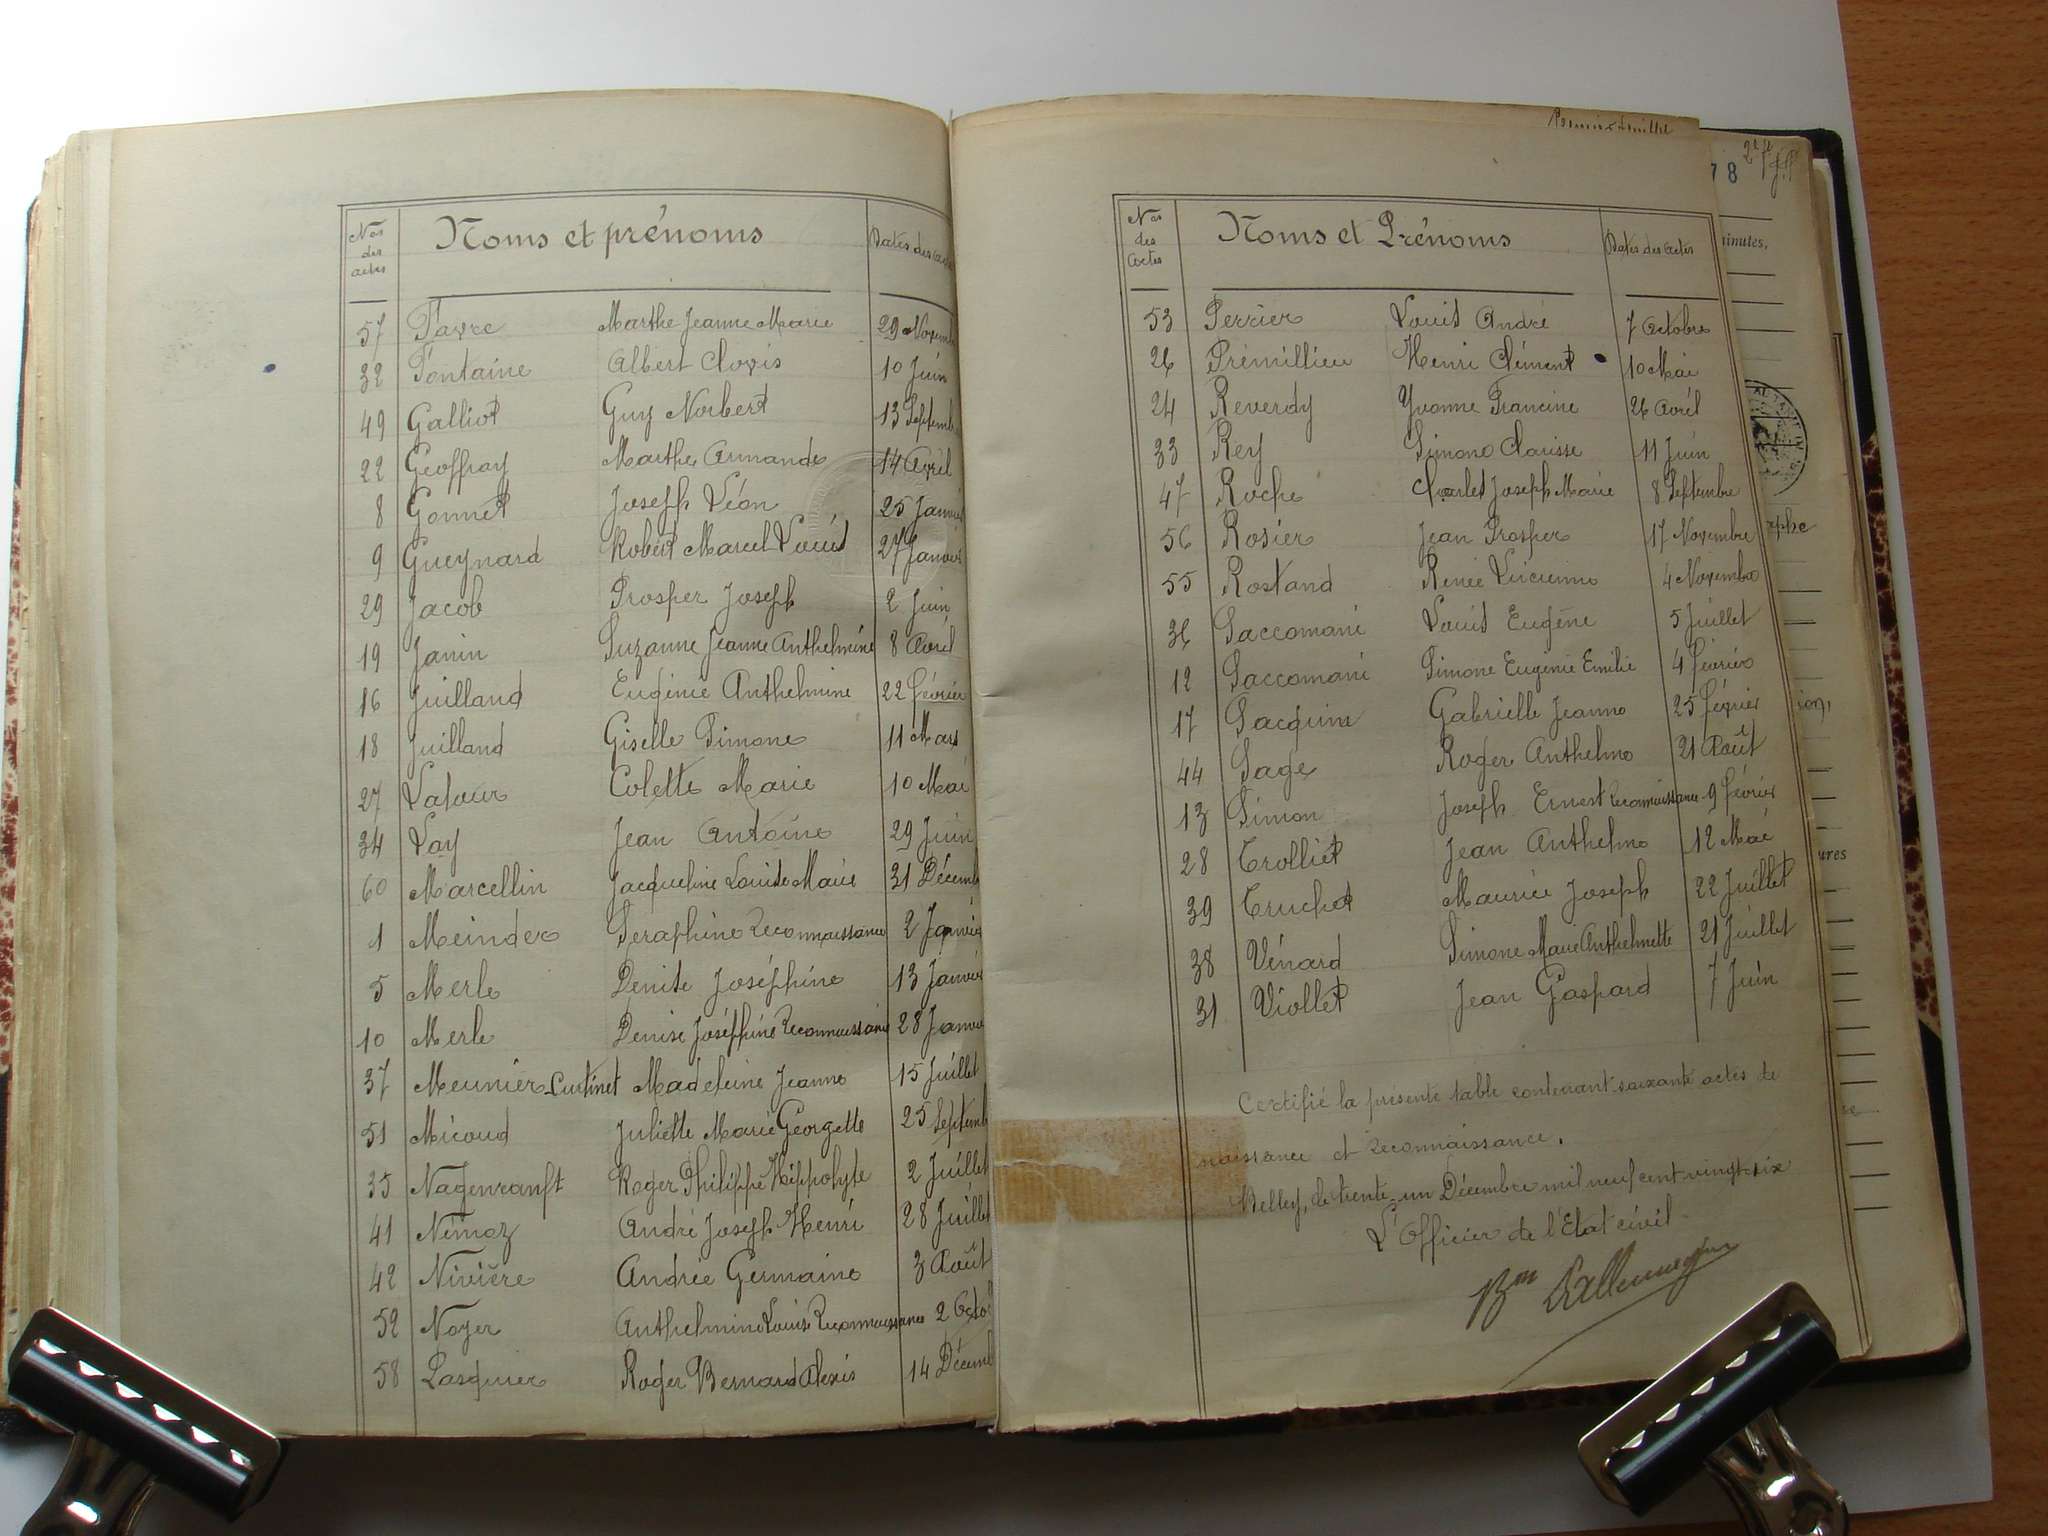 Nos des actes Noms et prénoms Dates des
57 Favre Marthe Jeanne Marie 29 Novemb
32 Fontaine Albert Clovis 10 Juin
49 Galliot Guy Norbert 13 Septemb
22 Geoffray Marthe Armande 14 Avril
8 Gonnet Joseph Léon 25 Janvier
9 Gueynard Robert Marcel Louis 27 Janvier
29 Jacob Prosper Joseph 2 Juin
19 Janin Suzanne Jeanne Anthelmine 8 Avril
16 Juilland Eugénie Anthelmine 22 février
18 Juilland Giselle Simone 11 Mars
27 Latour Colette Marie 10 Mai
34 Lay Jean Antoine 29 Juin
60 Marcellin Jacqueline Louise Marie 31 Décemb
1 Meinder Seraphine reconnaissance 2 Janvier
5 Merle Denise Joséphine 13 Janvier
10 Merle Denise Joséphine reconnaissance 28 Janvier
37 Meunier-Curtinet Madeleine Jeanne 15 Juillet
51 Micoud Juliette Marie Georgette 25 Septemb
35 Nagenranft Roger Philippe Hippolyte 2 Juillet
41 Nimoz André Joseph Henri 28 Juillet
42 Nivière Andrée Germaine 3 Août
52 Noyer Anthelmine Louise Reconnaissance 2 Octo
58 Pasquier Roger Bernard Alexis 14 Décemb
Premier feuillet
78
Nos des Actes Noms et Prénoms Dates des actes
minutes,
53 Perrier Louis André 7 Octobre
26 Prémillieu Henri Clément 10 Mai
24 Reverdy Yvonne Francine 26 Avril
33 Rey Simone Clarisse 11 Juin
47 Roche Charles Joseph Marie 8 Septembre
56 Rosier Jean Prosper 17 Novembre
55 Rostand Renée Lucienne 4 Novembre
36 Saccomani Louis Eugène 5 Juillet
12 Saccomani Simone Eugénie Emilie 4 février
17 Sacquin Gabrielle Jeanne 25 février
44 Sage Roger Anthelme 21 Août
13 Simon Joseph Ernest reconnaissance 9 février
28 Trolliet Jean Anthelme 12 Mai
39 Truchet Maurice Joseph 22 Juillet
38 Vénard Simone Marie Anthelmette 21 Juillet
31 Viollet Jean Gaspard 7 Juin
Certifié la présente table contenant soixante actes de
naissance et reconnaissance.
Belley, le trente un Décembre mil neuf cent vingt six
L'Officier de l'Etat civil